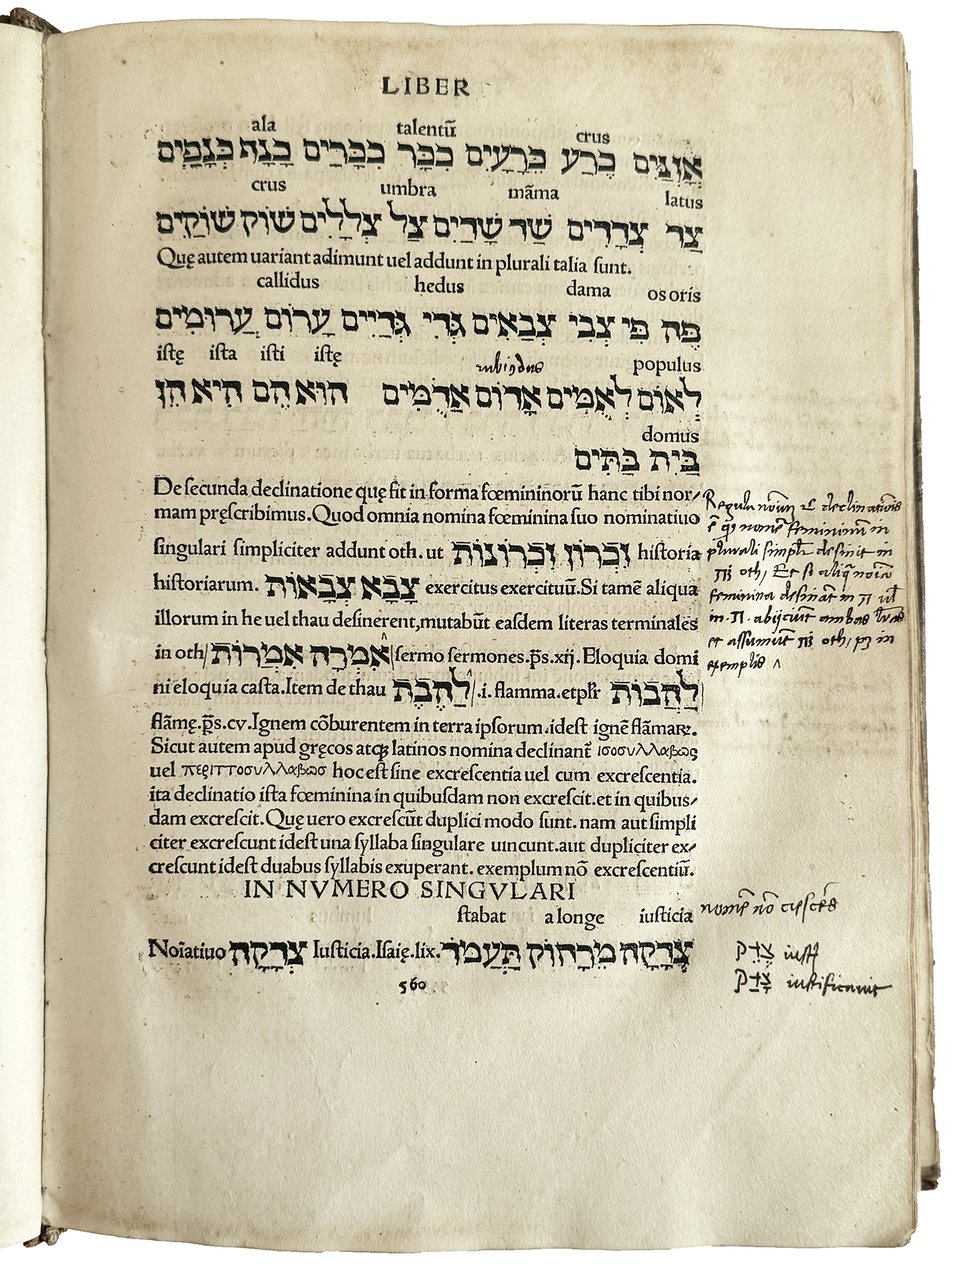 LIBER
ala talentū crus
אָזְנַיִם כֶּרַע כְּרָעַיִם כִּכָּר כִּכָּרַיִם כָּנָף כְּנָפַיִם
crus umbra māma latus
צַד צְדָדִים שַׁד שָׁדַיִם צֵל צְלָלִים שׁוֹק שׁוֹקַיִם
Quę autem uariant adimunt uel addunt in plurali talia ſunt.
callidus hedus dama os oris
פֶּה פִּי צְבִי צְבָאִים גְּדִי גְּדָיִים עָרוּם עֲרוּמִים
iſtę iſta iſti iſte rubidus populus
לְאוֹם לְאֻמִּים אָדוֹם אֲדֻמִּים הוּא הֵם הִיא הֵן
domus
בַּיִת בָּתִּים
De ſecunda declinatione quę fit in forma fœmininorū hanc tibi nor⸗
mam pręſcribimus. Quod omnia nomina fœminina ſuo nominatiuo
ſingulari ſimpliciter addunt oth. ut זִכְרוֹן זִכְרוֹנוֹת hiſtoria
hiſtoriarum. צָבָא צְבָאוֹת exercitus exercituū. Si tamē aliqua
illorum in he uel thau deſinerent, mutabūt eaſdem literas terminales
in oth/ אִמְרָה אִמְרוֹת ſermo ſermones. p̄s. xij. Eloquia domi
ni eloquia caſta. Item de thau לַהֶבֶת .i. flamma. et pl̄r לַהֲבוֹת
flāmę. p̄s. cv. Ignem cōburentem in terra ipſorum. ideſt ignē flāmaꝝ.
Sicut autem apud gręcos atqꝫ latinos nomina declinant̄ ισοσυλλαβως
uel περιττοσυλλαβως hoc eſt ſine excreſcentia uel cum excreſcentia.
ita declinatio iſta fœminina in quibuſdam non excreſcit. et in quibus⸗
dam excreſcit. Quę uero excreſcūt duplici modo ſunt. nam aut ſimpli
citer excreſcunt ideſt una ſyllaba ſingulare uincunt. aut dupliciter ex⸗
creſcunt ideſt duabus ſyllabis exuperant. exemplum nō excreſcentiū.
IN NVMERO SINGVLARI
ſtabat a longe iuſticia
Noīatiuo צְדָקָה Iuſticia. Iſaię. lix. צְדָקָה מֵרָחוֹק תַּעֲמֹד
560
Regula declinationis
nomē femininum in
plurali desinit in
oth, Et si
feminina desināt in ה
in ת abijciūt ambas
et assumūt oth, in
exemplis
nomē nō crescēs
צדק
צדק iustificauit